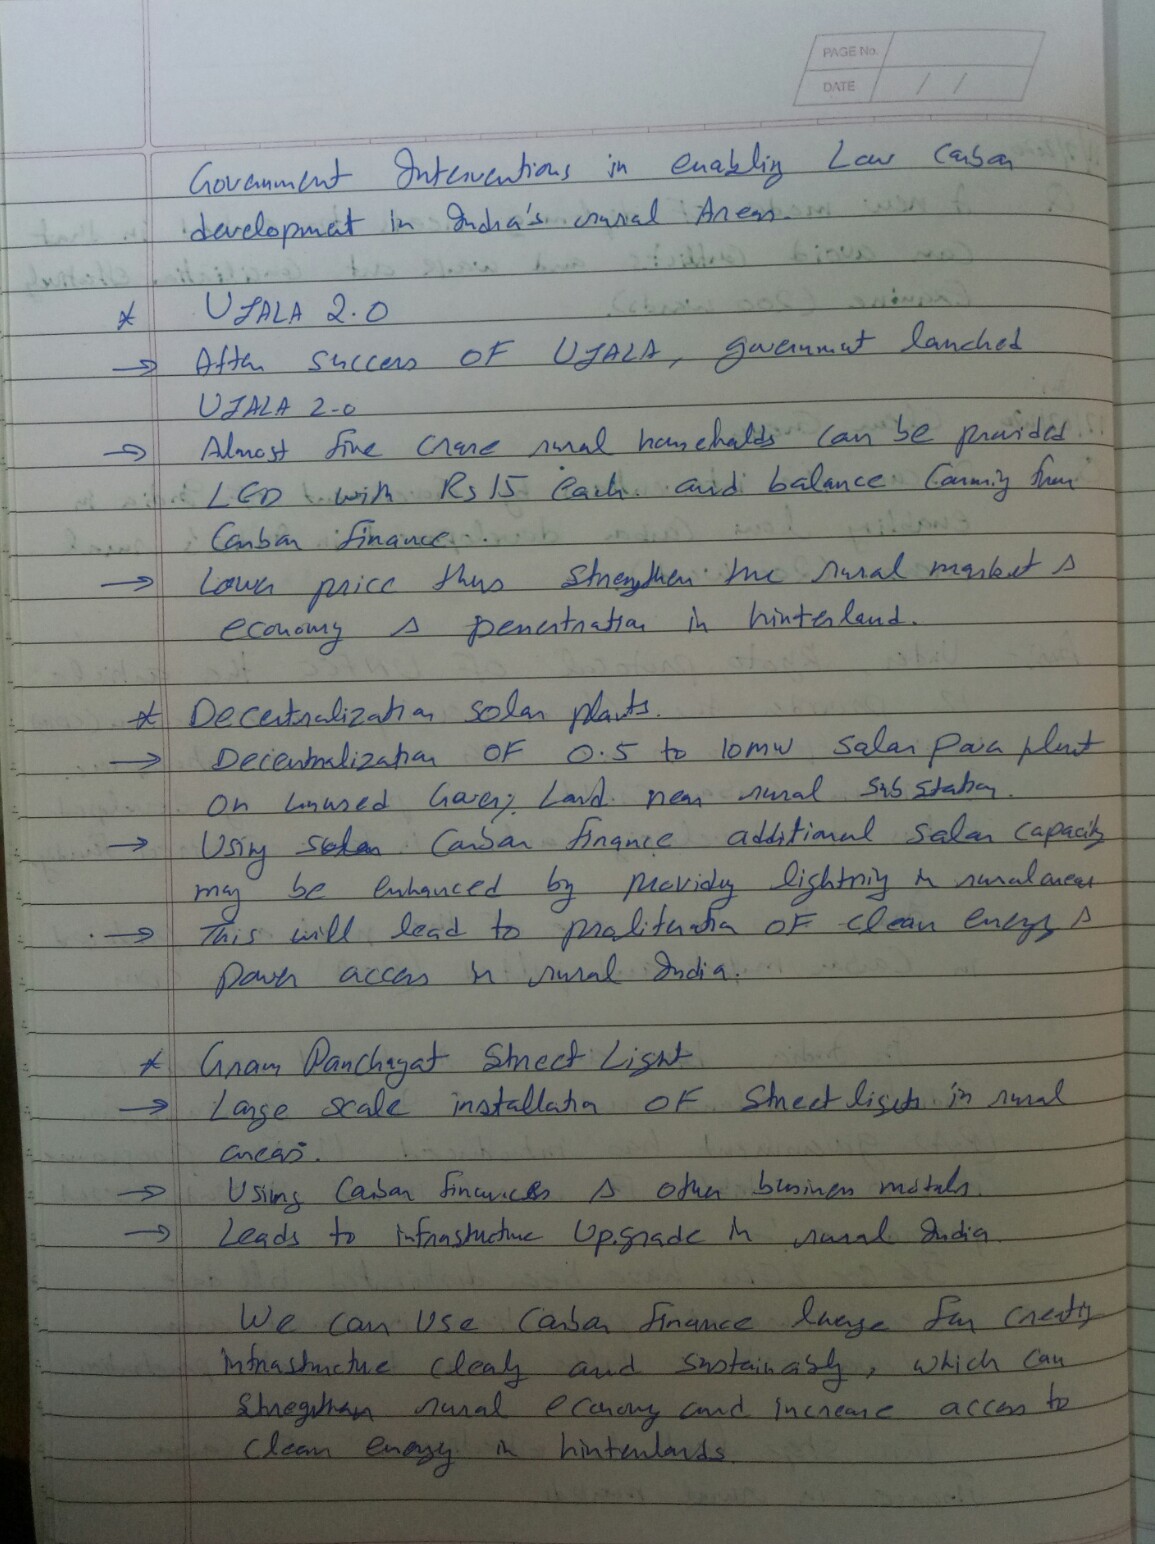 PAGE No.
DATE / /
Government Interventions in enabling Low Carbon
development in India's rural Areas.
* UJALA 2.0
→ After success OF UJALA, government lanched
UJALA 2.0
→ Almost five crore rural households can be provided
LED with Rs 15 each. and balance coming from
Carbon finance.
→ Lower price thus strengthen the rural market &
economy & penentration in hinterland.
* Decentralization solar plants.
→ Decentralization OF 0.5 to 10 mw solar plant
on unused Land near rural sub station.
→ Using solar Carbon finance additional solar capacity
may be enhanced by providing lightning in rural areas
→ This will lead to proliferation OF clean energy &
power access in rural India.
* Gram Panchayat Street Light
→ Large scale installation OF Street lights in rural
areas.
→ Using Carbon finances & other business
→ Leads to infrastructure Upgrade in rural India
We can Use Carbon finance for creating
infrastructure and sustainably, which can
rural economy and increase access to
clean energy in hinterlands.